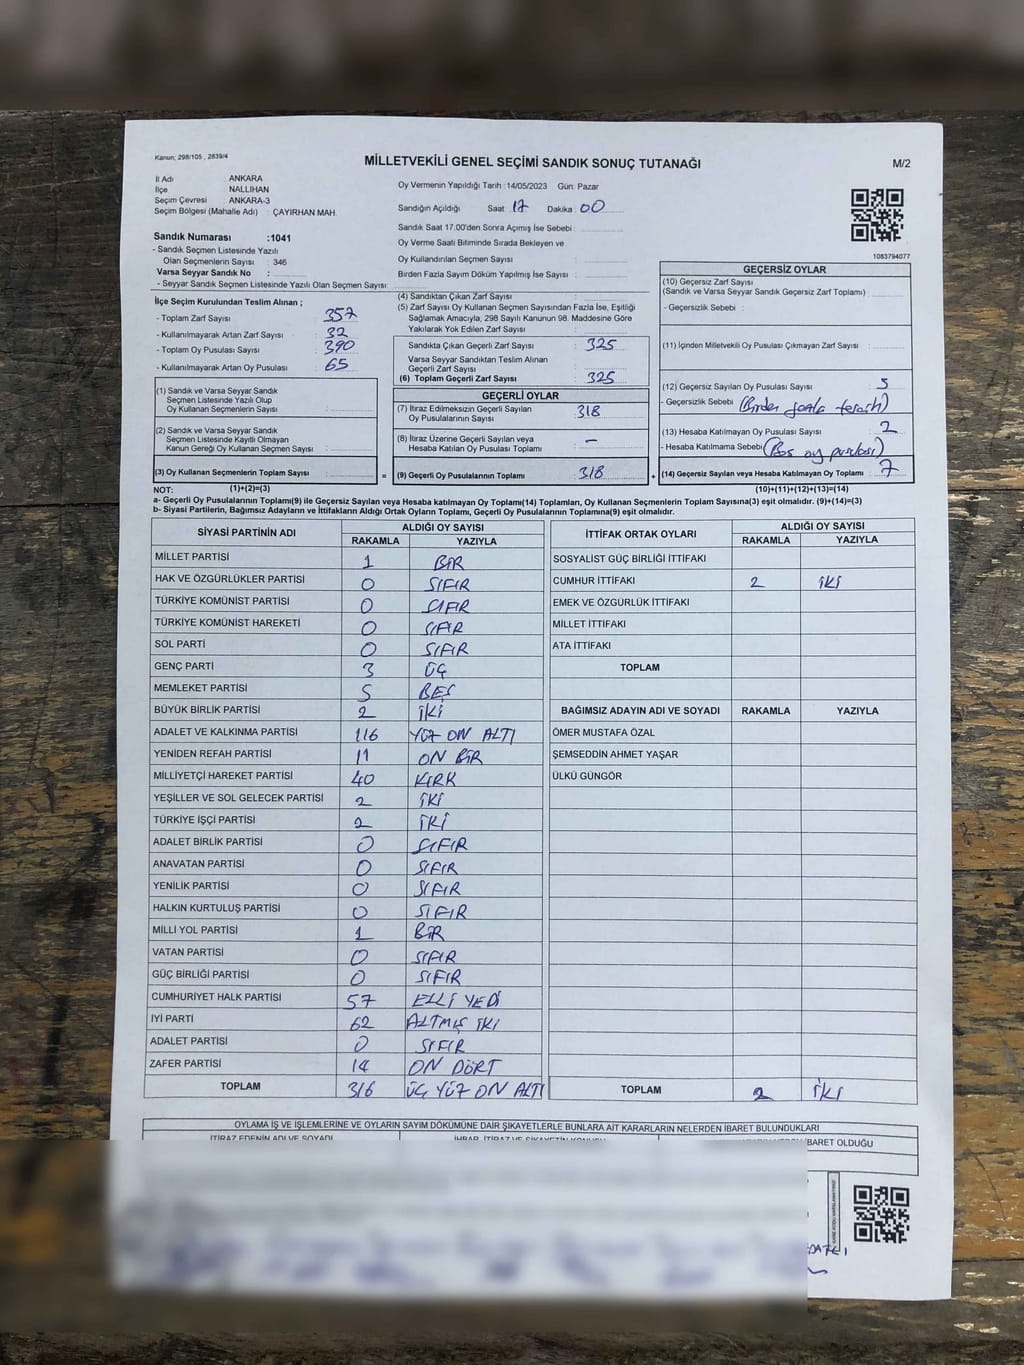 Kanun; 298/105 , 2839/4
MİLLETVEKİLİ GENEL SEÇİMİ SANDIK SONUÇ TUTANAĞI
M/2
İl Adı : ANKARA
İlçe : NALLIHAN
Seçim Çevresi : ANKARA-3
Seçim Bölgesi (Mahalle Adı) : ÇAYIRHAN MAH.
Oy Vermenin Yapıldığı Tarih :14/05/2023 Gün: Pazar
Sandığın Açıldığı Saat 17 Dakika : 00
Sandık Saat 17.00'den Sonra Açımış İse Sebebi :
Oy Verme Saati Bitiminde Sırada Bekleyen ve
Oy Kullandırılan Seçmen Sayısı :
Birden Fazla Sayım Döküm Yapılmış İse Sayısı :
Sandık Numarası :1041
- Sandık Seçmen Listesinde Yazılı
Olan Seçmenlerin Sayısı : 346
Varsa Seyyar Sandık No :
- Seyyar Sandık Seçmen Listesinde Yazılı Olan Seçmen Sayısı:
1083794077
İlçe Seçim Kurulundan Teslim Alınan ;
- Toplam Zarf Sayısı : 357
- Kullanılmayarak Artan Zarf Sayısı : 32
- Toplam Oy Pusulası Sayısı : 390
- Kullanılmayarak Artan Oy Pusulası : 65
(1) Sandık ve Varsa Seyyar Sandık
Seçmen Listesinde Yazılı Olup
Oy Kullanan Seçmenlerin Sayısı :
(2) Sandık ve Varsa Seyyar Sandık
Seçmen Listesinde Kayıtlı Olmayan
Kanun Gereği Oy Kullanan Seçmen Sayısı :
(3) Oy Kullanan Seçmenlerin Toplam Sayısı :
(1)+(2)=(3)
(4) Sandıktan Çıkan Zarf Sayısı :
(5) Zarf Sayısı Oy Kullanan Seçmen Sayısından Fazla İse, Eşitliği
Sağlamak Amacıyla, 298 Sayılı Kanunun 98. Maddesine Göre
Yakılarak Yok Edilen Zarf Sayısı :
Sandıkta Çıkan Geçerli Zarf Sayısı : 325
Varsa Seyyar Sandıktan Teslim Alınan
Geçerli Zarf Sayısı :
(6) Toplam Geçerli Zarf Sayısı : 325
GEÇERLİ OYLAR
(7) İtiraz Edilmeksizin Geçerli Sayılan
Oy Pusulalarının Sayısı : 318
(8) İtiraz Üzerine Geçerli Sayılan veya
Hesaba Katılan Oy Pusulaları Toplamı : -
= (9) Geçerli Oy Pusulalarının Toplamı : 318
GEÇERSİZ OYLAR
(10) Geçersiz Zarf Sayısı
(Sandık ve Varsa Seyyar Sandık Geçersiz Zarf Toplamı) :
- Geçersizlik Sebebi :
(11) İçinden Milletvekili Oy Pusulası Çıkmayan Zarf Sayısı :
(12) Geçersiz Sayılan Oy Pusulası Sayısı : 5
- Geçersizlik Sebebi : (Birden fazla tercih)
(13) Hesaba Katılmayan Oy Pusulası Sayısı : 2
- Hesaba Katılmama Sebebi : (Boş oy pusulası)
+ (14) Geçersiz Sayılan veya Hesaba Katılmayan Oy Toplamı : 7
(10)+(11)+(12)+(13)=(14)
NOT:
a- Geçerli Oy Pusulalarının Toplamı(9) ile Geçersiz Sayılan veya Hesaba katılmayan Oy Toplamı(14) Toplamları, Oy Kullanan Seçmenlerin Toplam Sayısına(3) eşit olmalıdır. (9)+(14)=(3)
b- Siyasi Partilerin, Bağımsız Adayların ve İttifakların Aldığı Ortak Oyların Toplamı, Geçerli Oy Pusulalarının Toplamına(9) eşit olmalıdır.
SİYASİ PARTİNİN ADI ALDIĞI OY SAYISI
RAKAMLA YAZIYLA
MİLLET PARTİSİ 1 BİR
HAK VE ÖZGÜRLÜKLER PARTİSİ 0 SIFIR
TÜRKİYE KOMÜNİST PARTİSİ 0 SIFIR
TÜRKİYE KOMÜNİST HAREKETİ 0 SIFIR
SOL PARTİ 0 SIFIR
GENÇ PARTİ 3 ÜÇ
MEMLEKET PARTİSİ 5 BEŞ
BÜYÜK BİRLİK PARTİSİ 2 İKİ
ADALET VE KALKINMA PARTİSİ 116 YÜZ ON ALTI
YENİDEN REFAH PARTİSİ 11 ON BİR
MİLLİYETÇİ HAREKET PARTİSİ 40 KIRK
YEŞİLLER VE SOL GELECEK PARTİSİ 2 İKİ
TÜRKİYE İŞÇİ PARTİSİ 2 İKİ
ADALET BİRLİK PARTİSİ 0 SIFIR
ANAVATAN PARTİSİ 0 SIFIR
YENİLİK PARTİSİ 0 SIFIR
HALKIN KURTULUŞ PARTİSİ 0 SIFIR
MİLLİ YOL PARTİSİ 1 BİR
VATAN PARTİSİ 0 SIFIR
GÜÇ BİRLİĞİ PARTİSİ 0 SIFIR
CUMHURİYET HALK PARTİSİ 57 ELLİ YEDİ
İYİ PARTİ 62 ALTMIŞ İKİ
ADALET PARTİSİ 0 SIFIR
ZAFER PARTİSİ 14 ON DÖRT
TOPLAM 316 ÜÇ YÜZ ON ALTI
İTTİFAK ORTAK OYLARI ALDIĞI OY SAYISI
RAKAMLA YAZIYLA
SOSYALİST GÜÇ BİRLİĞİ İTTİFAKI
CUMHUR İTTİFAKI 2 İKİ
EMEK VE ÖZGÜRLÜK İTTİFAKI
MİLLET İTTİFAKI
ATA İTTİFAKI
TOPLAM
BAĞIMSIZ ADAYIN ADI VE SOYADI RAKAMLA YAZIYLA
ÖMER MUSTAFA ÖZAL
ŞEMSEDDİN AHMET YAŞAR
ÜLKÜ GÜNGÖR
TOPLAM 2 İKİ
OYLAMA İŞ VE İŞLEMLERİNE VE OYLARIN SAYIM DÖKÜMÜNE DAİR ŞİKAYETLERLE BUNLARA AİT KARARLARIN NELERDEN İBARET BULUNDUKLARI
İTİRAZ EDENİN ADI VE SOYADI İHBAR, İTİRAZ VE ŞİKAYETİN KONUSU BARET OLDUĞU